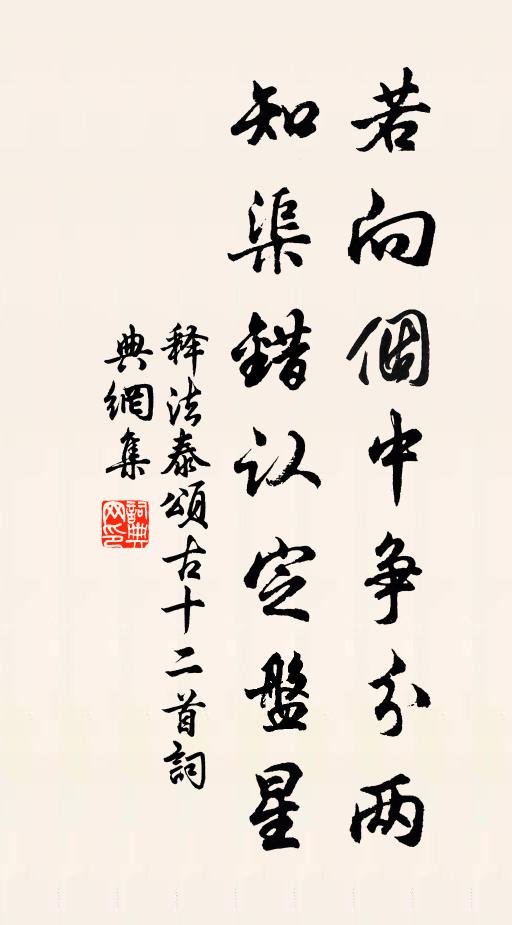 若向個中争分两
知渠錯认定盤星
释法泰頌古十二首詞
典網集
詞典网印